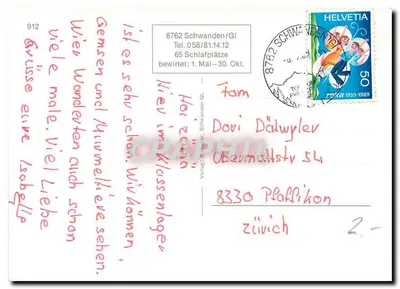 912
8762 Schwanden/Gl
Tel. 058/81.14.12
65 Schlafplätze
bewirtet: 1. Mai – 30. Okt.
8762 SCHWANDEN
HELVETIA
50
1933-1983
Hoi zäme
Hier im Klassenlager
ist es sehr schön. Wir können
Gemsen und Murmeltiere sehen.
Wier Wanderten auch schon
viele male. Viel Liebe
Grüsse eure Isabelle
Fam
Dori Dätwyler
Obermattstr 54
8330 Pfäffikon
Zürich
2.-
Schwanden GL